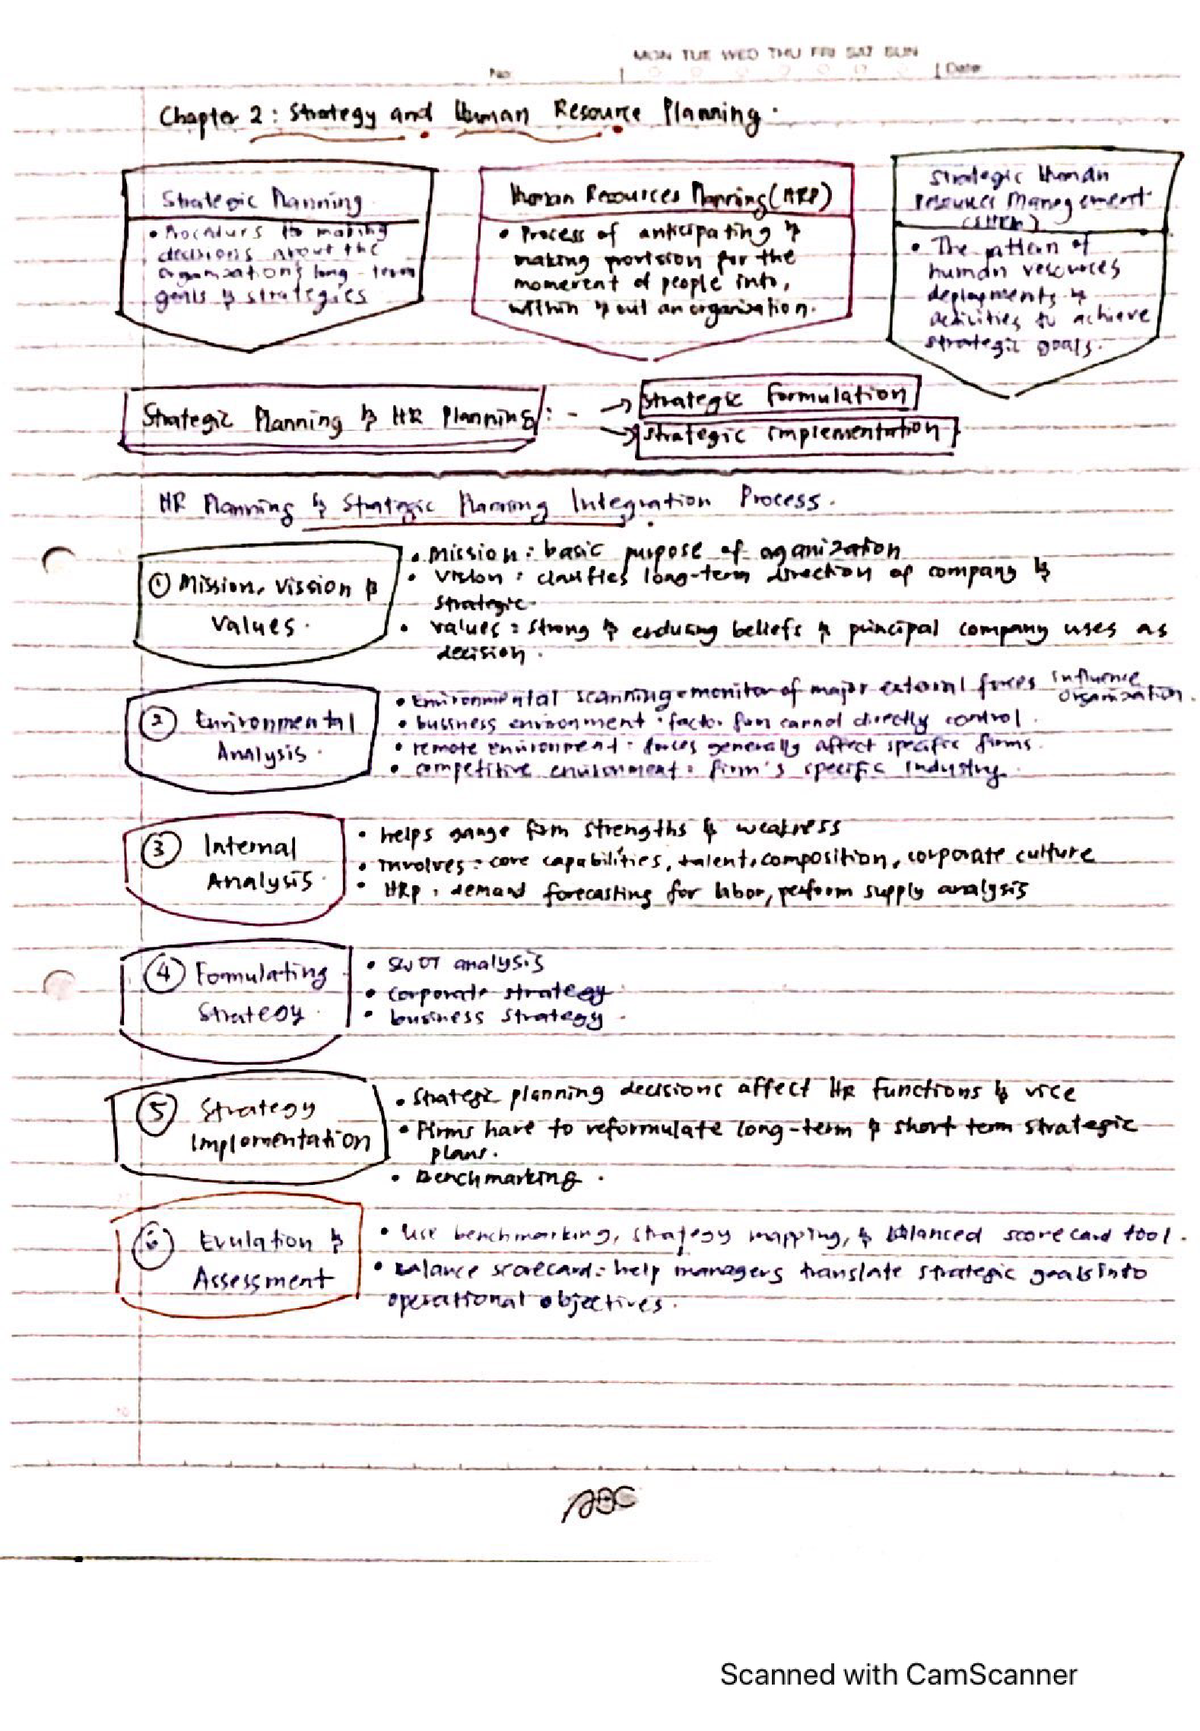 MON TUE WED THU FRI SAT SUN
No: Date:
Chapter 2 : Strategy and Human Resource Planning.
Strategic Planning
• Procedurs to making
decisions about the
organization's long-term
goals & strategies
Human Resources Planning (HRP)
• Process of anticipating &
making provision for the
momerent of people into,
within & out an organization.
Strategic Human
Resources Management
(SHRM)
• The pattern of
human resources
deployments &
activities to achieve
strategic goals.
Strategic Planning & HR Planning : - → Strategic Formulation
→ Strategic Implementation
HR Planning & Strategic Planning Integration Process.
① Mission, Vission &
Values.
• Mission : basic purpose of oganization
• Vision : clarifies long-term direction of company &
strategic
• Values : strong & enduring beliefs & principal company uses as
decision.
② Environmental
Analysis.
• Environmental scanning = monitor of major external forces influence
organization.
• bussness environment : factor firm cannot directly control.
• remote environment : forces generally affect specific firms.
• competitive environment : firm's specific industry.
③ Internal
Analysis.
• helps gauge firm strengths & weakness
• Involves : core capabilities, talent, composition, corporate culture
• HRP : demand forecasting for labor, perform supply analysis
④ Formulating
Strategy.
• SWOT analysis
• corporate strategy
• business strategy.
⑤ Strategy
Implementation
• Strategic planning decisions affect HR functions & vice
• Firms have to reformulate long-term & short term strategic
plans.
• Benchmarking.
⑥ Evulation &
Assessment
• Use benchmarking, strategy mapping, & balanced scorecard tool.
• Balance scorecard : help managers translate strategic goals into
operational objectives.
ABC
Scanned with CamScanner